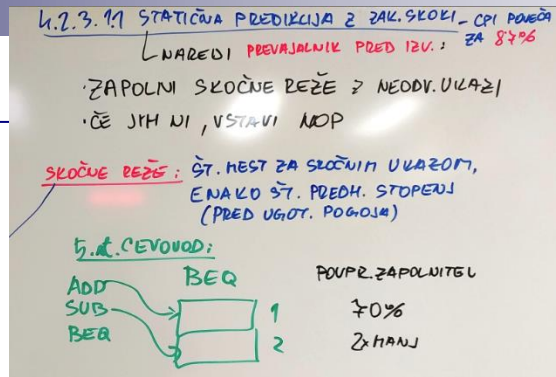 4.2.3.1.1 STATIČNA PREDIKCIJA Z ZAK. SKOKI - CPI POVEČA ZA 87%
NAREDI PREVAJALNIK PRED IZV.:
· ZAPOLNI SKOČNE REŽE Z NEODV. UKAZI
· ČE JIH NI, VSTAVI NOP
SKOČNE REŽE: ŠT. MEST ZA SKOČNIM UKAZOM,
ENAKO ŠT. PREDH. STOPENJ
(PRED UGOT. POGOJA)
5. st. CEVOVOD:
BEQ POVPR. ZAPOLNITEV
ADD
SUB 1 70%
BEQ 2 2x MANJ